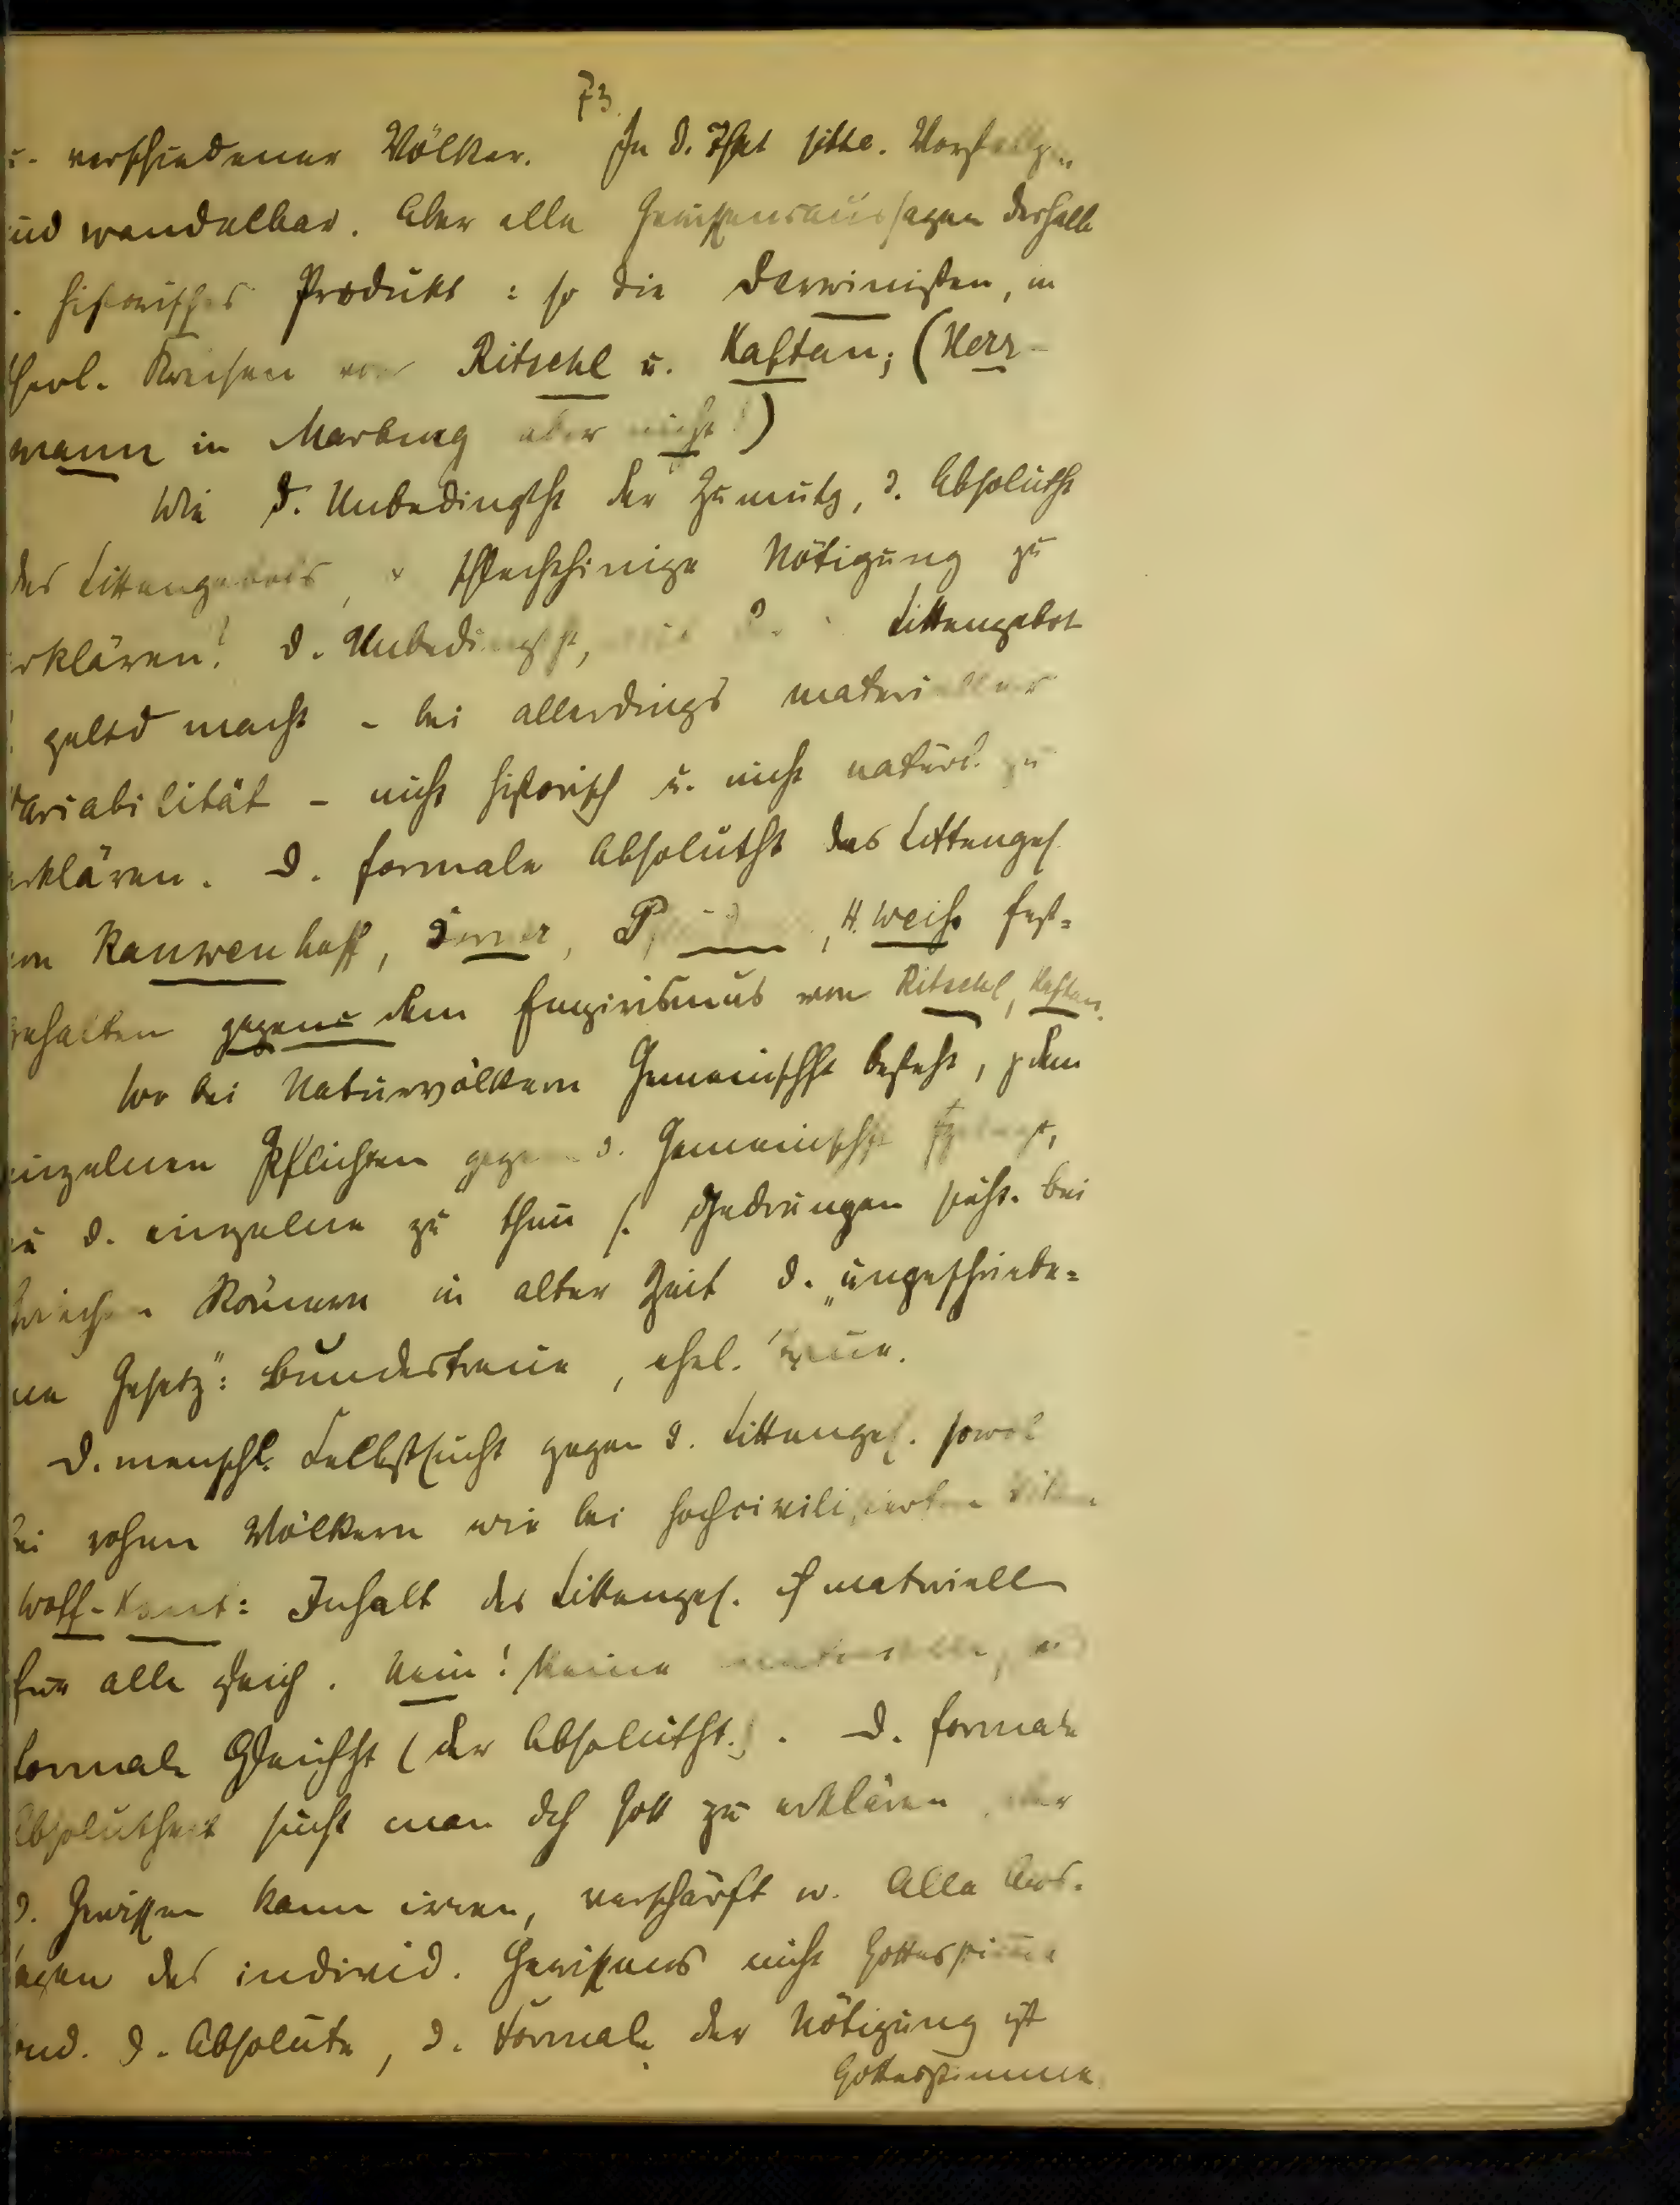 73.
u. verschiedener Völker. In d. That sittl. Vorstellgn
sind wandelbar. Aber alle Gewissensaussagen deshalb
historisches Produkt: so die Darwinisten, in
theol. Kreisen von Ritschl u. Kaftan; (Herr-
mann in Marburg aber nicht!)
Wie d. Unbedingtht der Zumutg, d. Absolutht
des Sittengebots, schlechthinige Nötigung zu
erklären? d. Unbedingtht, Sittengebot
geltd macht - bei allerdings materieller
Variabilität - nicht historisch u. nicht natürl. zu
erklären. D. formale Absolutht des Sittenges.
von Rauwenhoff, Dorner, H. Weiss fest-
gehalten gegenü dem Empirismus von Ritschl, Kaftan.
Wo bei Naturvölkern Gemeinschft besteht,
einzelnen Pflichten gegen d. Gemeinschft
d. einzelne zu thun s. gedrungen fühlt. bei
Griechen Römern in alter Zeit d. „ungeschriebe-
ne Gesetz": Bundestreue, ehel. Treue.
D. menschl. Selbstsucht gegen d. Sittenges. sowol
bei rohen Völkern wie bei hochcivilisierten
Wolff-Kant: Inhalt des Sittenges. ist materiell
für alle gleich. Nein! Keine materielle,
formale Gleichht (der Absolutht.). D. formale
Absolutheit sucht man dch Gott zu erklären, aber
d. Gewissen kann irren, verschärft w. Alle Aus-
sagen des individ. Gewissens nicht Gottesstimme
sind. D. Absolute, d. Formale der Nötigung ist
Gottesstimme.